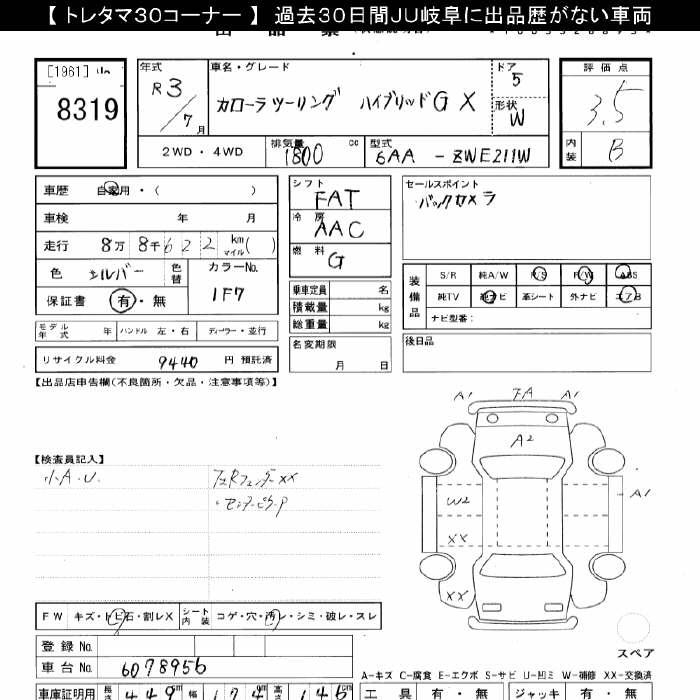 【 トレタマ３０コーナー 】 過去３０日間ＪＵ岐阜に出品歴がない車両
[1961]
8319
年式
R3/7月
車名・グレード
カローラツーリング ハイブリッドG X
ドア
5
形状
W
評価点
3.5
内装
B
2WD・4WD
排気量 1800 cc
型式 6AA - ZWE211W
車歴 自家用・( )
車検 年 月
走行 8万8千622 km マイル ( )
色 シルバー 色替
カラーNo. 1F7
保証書 有・無
モデル年式 年 ハンドル 左・右 ディーラー・並行
リサイクル料金 9440 円 預託済
シフト FAT
冷房 AAC
燃料 G
乗車定員 名
積載量 kg
総重量 kg
名変期限
月 日
セールスポイント
バックカメラ
装備品
S/R 純A/W P/S P/W ABS
純TV 純ナビ 革シート 外ナビ エアB
ナビ型番：
後日品
【出品店申告欄(不良箇所・欠品・注意事項等)】
【検査員記入】
小A.U.
A1 FA A1
A2
W2
A1
XX
XX
FW キズ・トビ石・割レX
シート内装 コゲ・穴・汚レ・シミ・破レ・スレ
登録 No.
車台 No. 6078956
スペア
A−キズ C−腐食 E−エクボ S−サビ U−凹ミ W−補修 XX−交換済
車庫証明用 長さ 449 cm 幅 174 高さ 146 cm
工具 有・無 ジャッキ 有・無